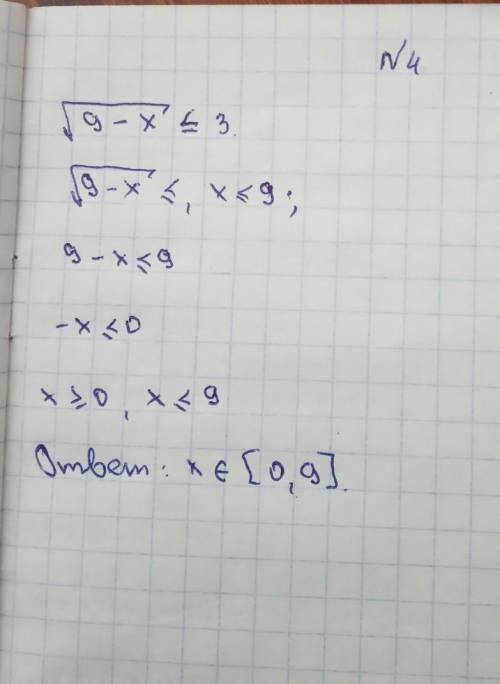 N4
√(9 - x) ≤ 3.
√(9 - x) ≤, x ≤ 9;
9 - x ≤ 9
-x ≤ 0
x ≥ 0, x ≤ 9
Ответ: x ∈ [0, 9].